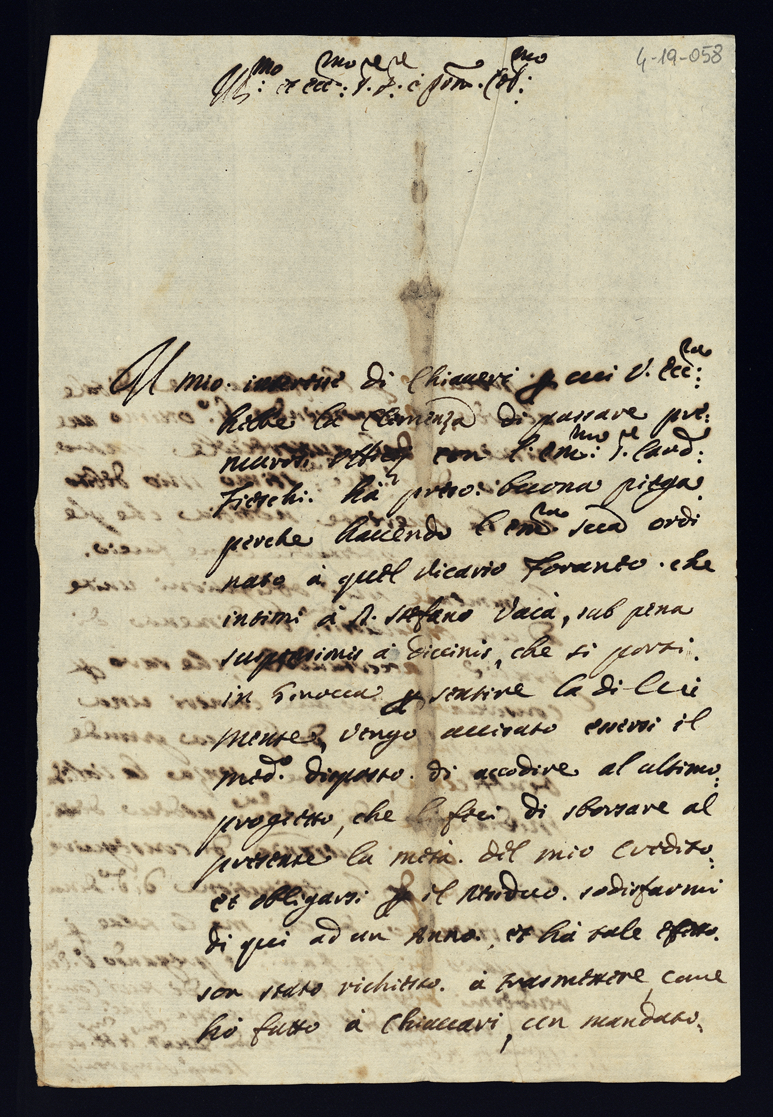 4-19-058
Ill.mo et ecc.mo S.re S.re e pron. Col.mo
Il mio interesse di Chiaveri per cui V. Ecc.za
hebe la clemenza di passare pre:
murosi con l'em.mo S.re Card:
Fieschi. hà preso. buona piega
perche havendo l'em.za sua ordi
nato à quel Vicario Foraneo. che
intimi à S. Stefano Vaca, sub pena
suspensionis à Divinis, che si porti.
in Genova per sentire la di lui
mente, vengo avisato essersi il
med.o disposto. di accodire al ultimo:
progetto, che li feci di sborsare al
presente la metà. del mio Credito:
et obligarsi per il residuo. sodisfarmi
di qui ad un Anno., et hà tale effetto.
son stato richiesto. à trasmettere, come
hò fatto à Chiavari, un mandato.